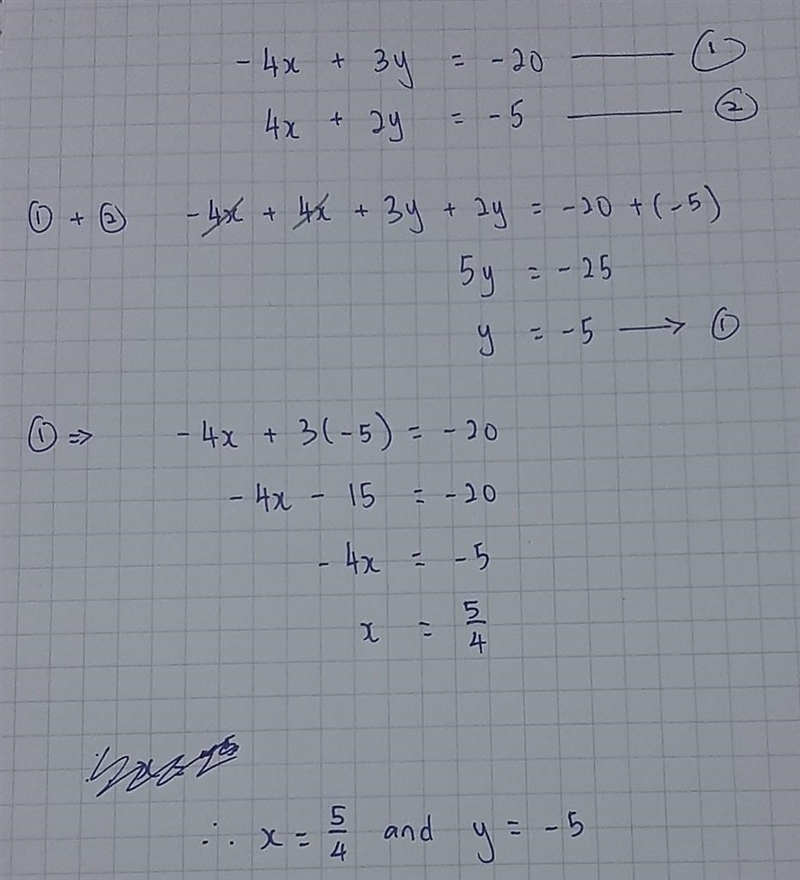 -4x + 3y = -20 ——— ①
4x + 2y = -5 ——— ②
① + ② -4x + 4x + 3y + 2y = -20 + (-5)
5y = -25
y = -5 → ①
① ⇒ -4x + 3(-5) = -20
-4x - 15 = -20
-4x = -5
x = 5/4
∴ x = 5/4 and y = -5